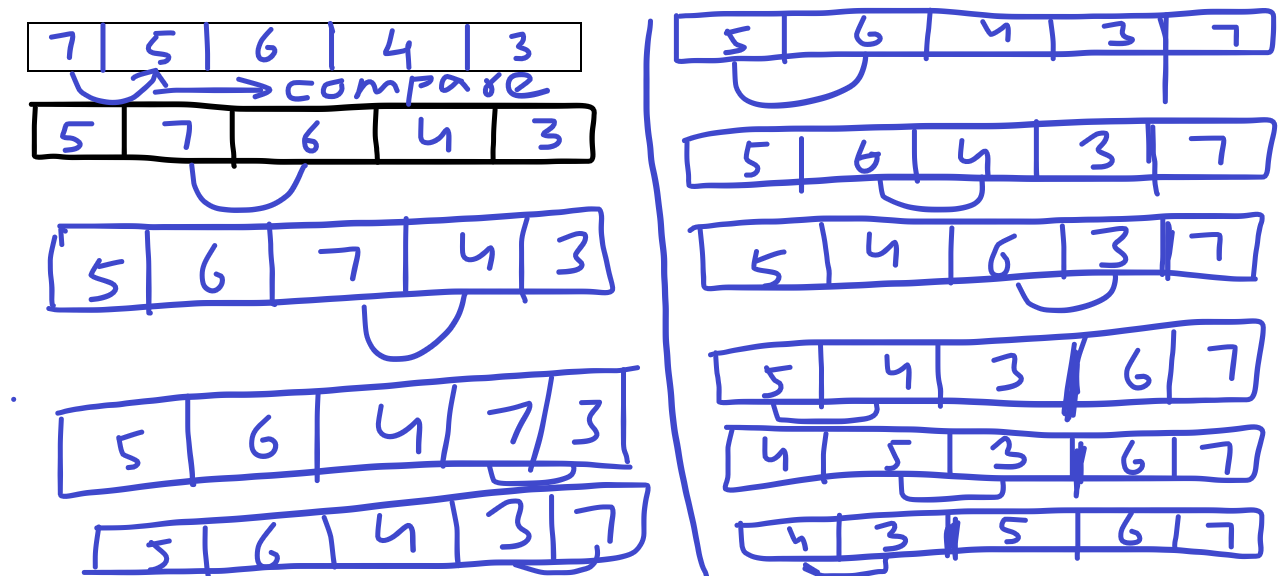 7 5 6 4 3
compare
5 7 6 4 3
5 6 7 4 3
5 6 4 7 3
5 6 4 3 7
5 6 4 3 7
5 6 4 3 7
5 4 6 3 7
5 4 3 6 7
4 5 3 6 7
4 3 5 6 7